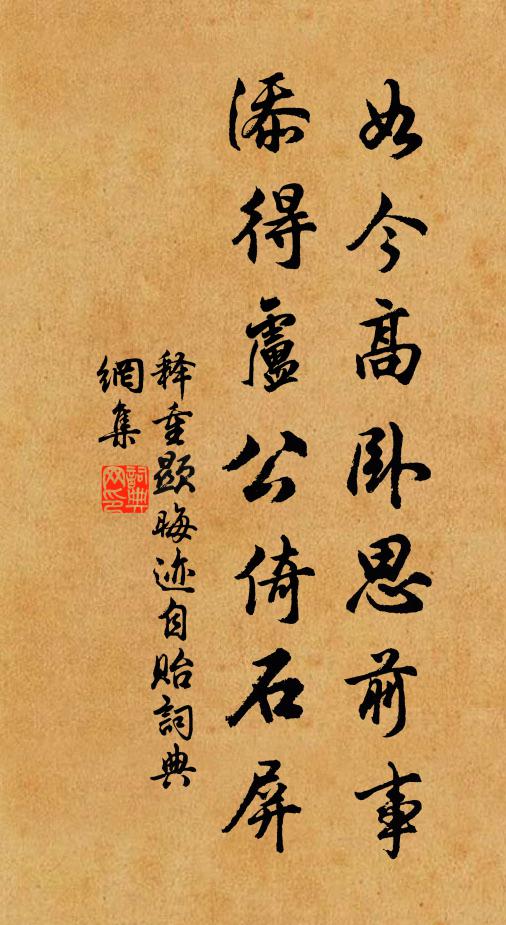 如今高卧思前事
添得盧公倚石屏
释重顯晦迹自贻詞典
網集
詞典
网印